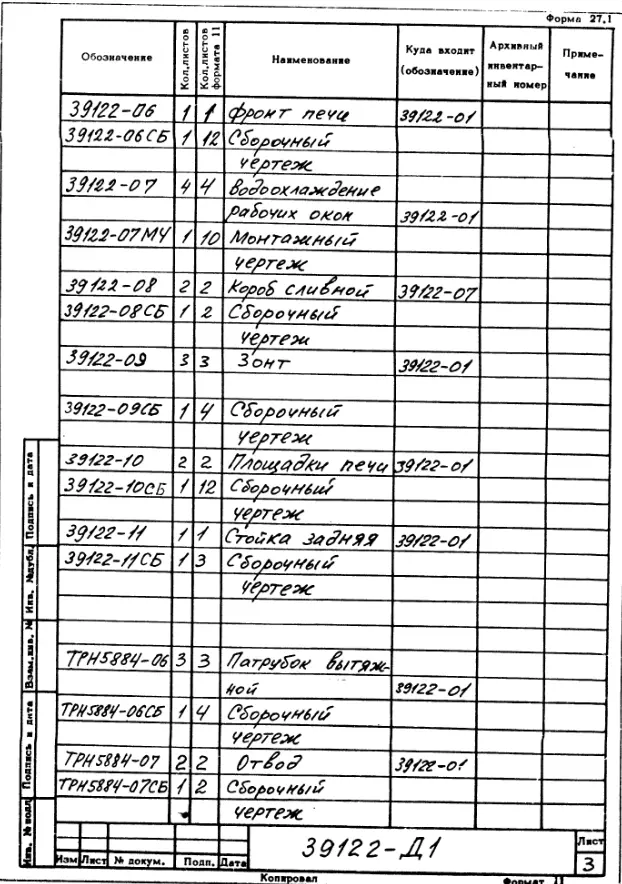 Форма 27.1
Обозначение Кол.листов Кол.листов формата 11 Наименование Куда входит (обозначение) Архивный инвентарный номер Примечание
39122-06 1 1 Фронт печи 39122-01
39122-06СБ 1 12 Сборочный
чертеж
39122-07 4 4 Водоохлаждение
рабочих окон 39122-01
39122-07МЧ 1 10 Монтажный
чертеж
39122-08 2 2 Короб сливной 39122-07
39122-08СБ 1 2 Сборочный
чертеж
39122-09 3 3 Зонт 39122-01
39122-09СБ 1 4 Сборочный
чертеж
39122-10 2 2 Площадки печи 39122-01
39122-10СБ 1 12 Сборочный
чертеж
39122-11 1 1 Стойка задняя 39122-01
39122-11СБ 1 3 Сборочный
чертеж
ТРН5884-06 3 3 Патрубок вытяж-
ной 39122-01
ТРН5884-06СБ 1 4 Сборочный
чертеж
ТРН5884-07 2 2 Отвод 39122-01
ТРН5884-07СБ 1 2 Сборочный
чертеж
Подпись и дата
Инв. №дубл.
Взам.инв. №
Подпись и дата
Инв. №подл.
39122-Д1
Лист
3
Изм Лист № докум. Подп. Дата
Копировал Формат 11